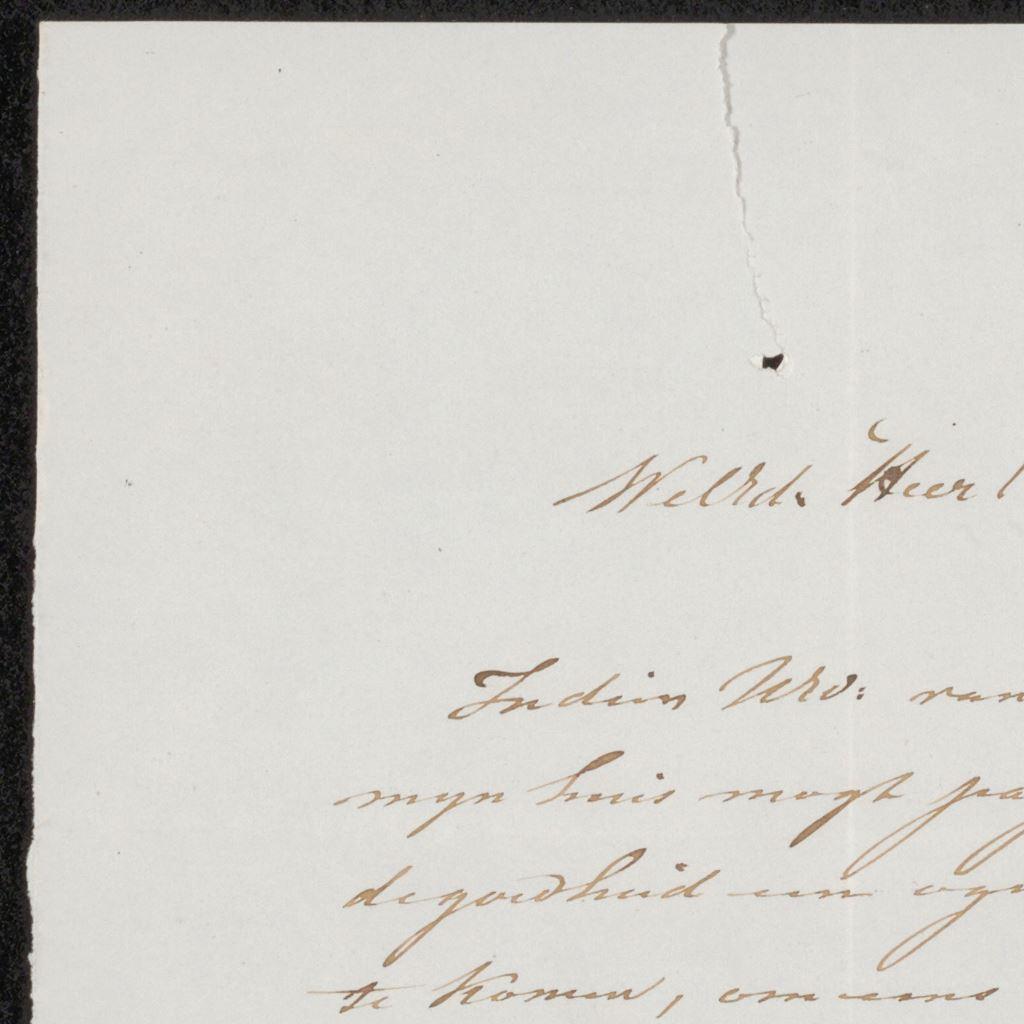 WelEd. Heer!
Indien UEd: van
myn huis mogt pa
de goedheid een oge
te komen, om eens